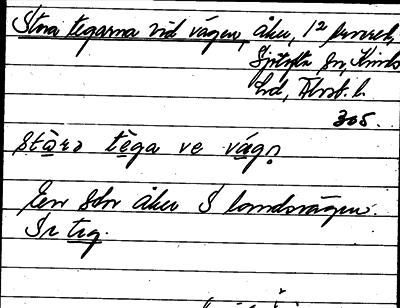 Stora tegarna vid vägen, åker, 12
Sjötofta sn, Kinds
hd, Älvsb. l.
305.
stòra tèga ve vág
En stor åker S landsvägen.
Se teg.